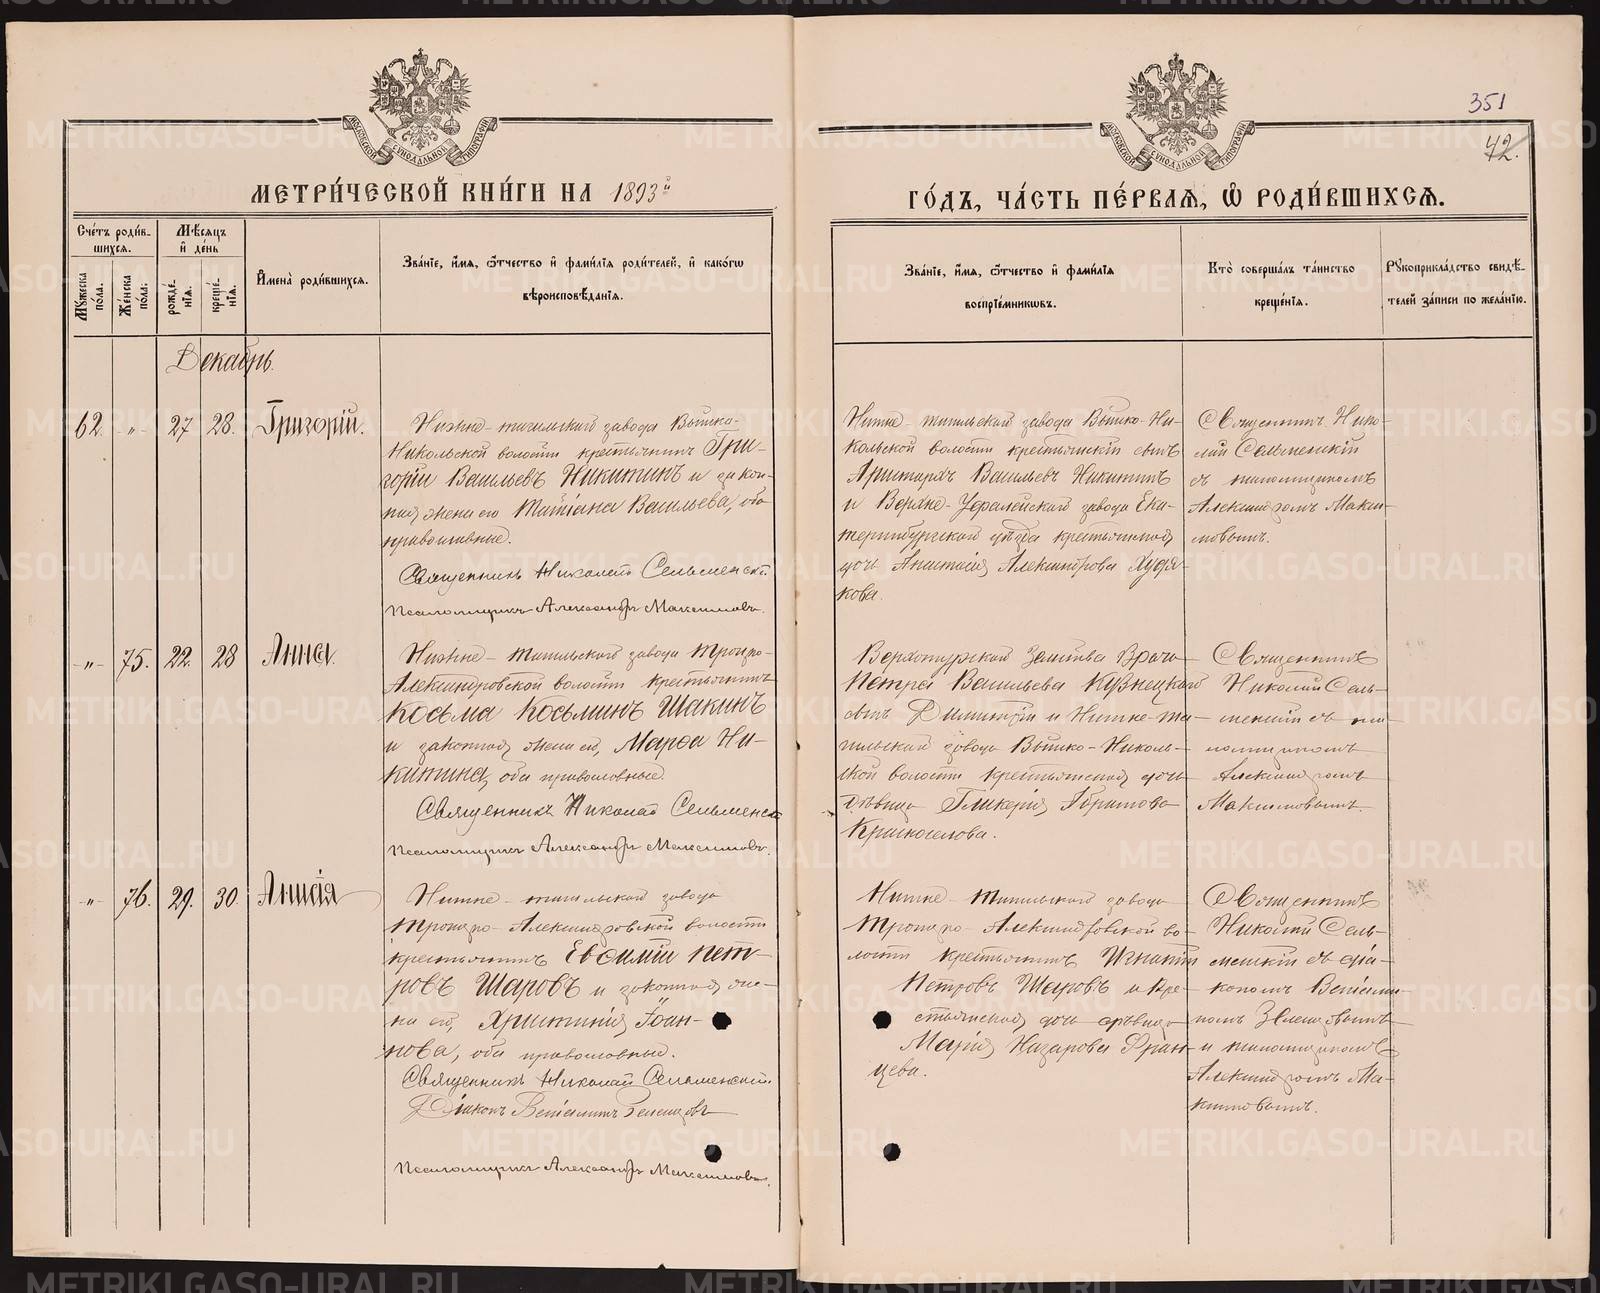 351
42.
МОСКОВСКОЙ СУНОДАЛЬНОЙ ТИПОГРАФІИ
МОСКОВСКОЙ СУНОДАЛЬНОЙ ТИПОГРАФІИ
МЕТРИ́ЧЕСКОЙ КНИ́ГИ НА 1893й
ГО́ДЪ, ЧА́СТЬ ПЕ́РВАЯ, Ѡ РОДИ́ВШИХСЯ.
Сче́тъ роди́в-
шихся.
Мꙋжеска по́ла.
Же́нска по́ла.
Мѣ́сяцъ
и҆ де́нь
рожде́-
нія.
креще́-
нія.
И҆мена̀ роди́вшихся.
Зва́ніе, и҆́мя, ѻ҆́тчество и҆ фами́лія роди́телей, и҆ како́гѡ
вѣроисповѣ́данія.
Зва́ніе, и҆́мя, ѻ҆́тчество и҆ фами́лія
воспріе́мникѡвъ.
Кто̀ соверша́лъ та́инство
креще́нія.
Рꙋкоприкла́дство свидѣ́-
телей за́писи по жела́нію.
Декабрь.
62. -"- 27 28. Григорій.
Нижне-тагильскаго завода Выйско-
Никольской волости крестьянинъ Гри-
горій Васильевъ Никитинъ и закон-
ная жена его Татіана Васильева, оба
православные.
Священникъ Николай Сельменскій
Псаломщикъ Александръ Максимовъ.
Нижне-тагильскаго завода Выйско-Ни-
кольской волости крестьянскій сынъ
Аристархъ Васильевъ Никитинъ
и Верхне-Уфалейскаго завода Ека-
теринбургскаго уѣзда крестьянская
дочь Анастасія Александрова Худя-
кова.
Священникъ Нико-
лай Сельменскій
съ псаломщикомъ
Александромъ Макси-
мовымъ.
-"- 75. 22. 28 Анна.
Нижне-тагильскаго завода Троицко-
Александровской волости крестьянинъ
Косьма Косьминъ Шакинъ
и законная жена его, Марѳа Ни-
китина, оба православные.
Священникъ Николай Сельменскій
Псаломщикъ Александръ Максимовъ.
Верхотурскаго Земства Врача
Петра Васильева Кузнецкаго
сынъ Димитрій и Нижне-та-
гильскаго завода Выйско-Николь-
ской волости крестьянская дочь
дѣвица Гликерія
Красноселова.
Священникъ
Николай Сель-
менскій съ пса-
ломщикомъ
Александромъ
Максимовымъ.
-"- 76. 29. 30. Анисія
Нижне-тагильскаго завода
Троицко-Александровской волости
крестьянинъ Евѳимій Пет-
ровъ Шаровъ и законная же-
на его, Христинія Іоан-
нова, оба православные.
Священникъ Николай Сельменскій
Діаконъ Веніаминъ
Псаломщикъ Александръ Максимовъ.
Нижне-тагильскаго завода
Троицко-Александровской во-
лости крестьянинъ Игнатій
Петровъ Шаровъ и кре-
стьянская дочь дѣвица
Марія Назарова Фран-
цева.
Священникъ
Николай Сель-
менскій съ діа-
кономъ Веніами-
номъ
и псаломщикомъ
Александромъ Ма-
ксимовымъ.
METRIKI.GASO-URAL.RU